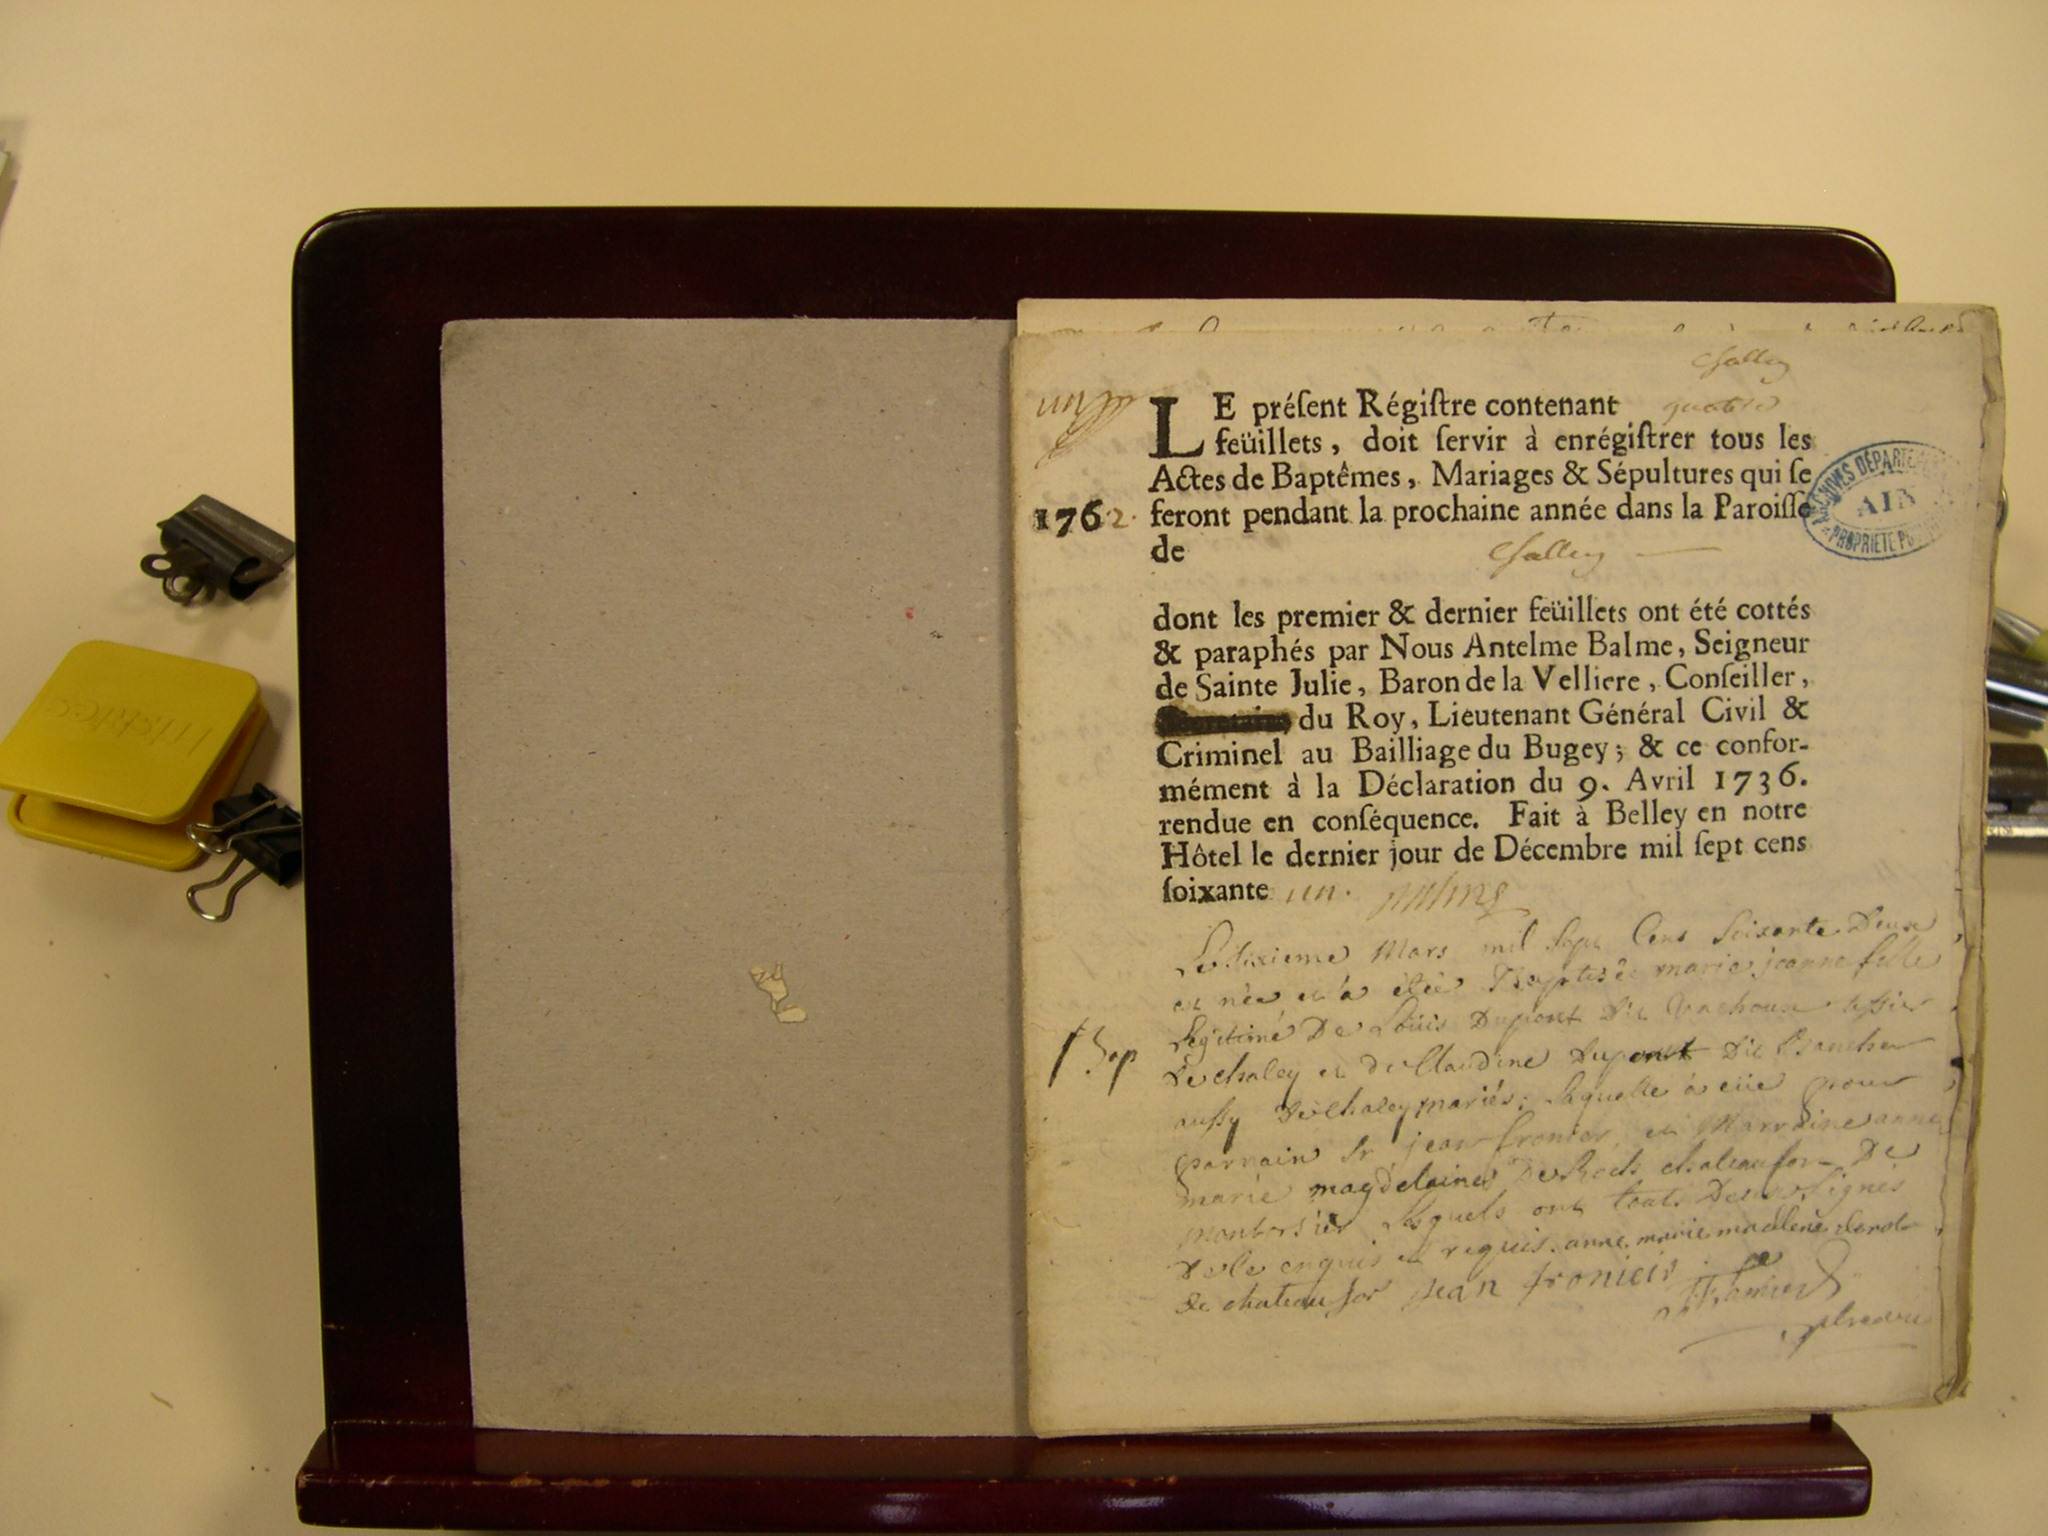 Challey
un
LE préſent Régiſtre contenant quatre
feüillets, doit ſervir à enrégiſtrer tous les
Actes de Baptêmes, Mariages & Sépultures qui ſe
1762. feront pendant la prochaine année dans la Paroiſſe
de Challey
ARCHIVES DÉPARTE
AIN
PROPRIÉTÉ PU
dont les premier & dernier feüillets ont été cottés
& paraphés par Nous Antelme Balme, Seigneur
de Sainte Julie, Baron de la Velliere, Conſeiller,
du Roy, Lieutenant Général Civil &
Criminel au Bailliage du Bugey; & ce confor-
mément à la Déclaration du 9. Avril 1736.
rendue en conſéquence. Fait à Belley en notre
Hôtel le dernier jour de Décembre mil ſept cens
ſoixante un.
Le sixieme Mars mil sept Cens soixante Deux
est née et a étée Baptisée marie jeanne fille
Legitime De Loüis Dupont Dit
De chaley et de Claudine Dupont Dit
aussy De Chaley mariés; Laquelle a eüe pour
parrain Sr jean fronier et Marraine anne
marie magdelaine De chateaufor De
Lesquels ont touts Deux signés
De ce enquis et requis. anne marie madlene
de chateaufor jean fronieir